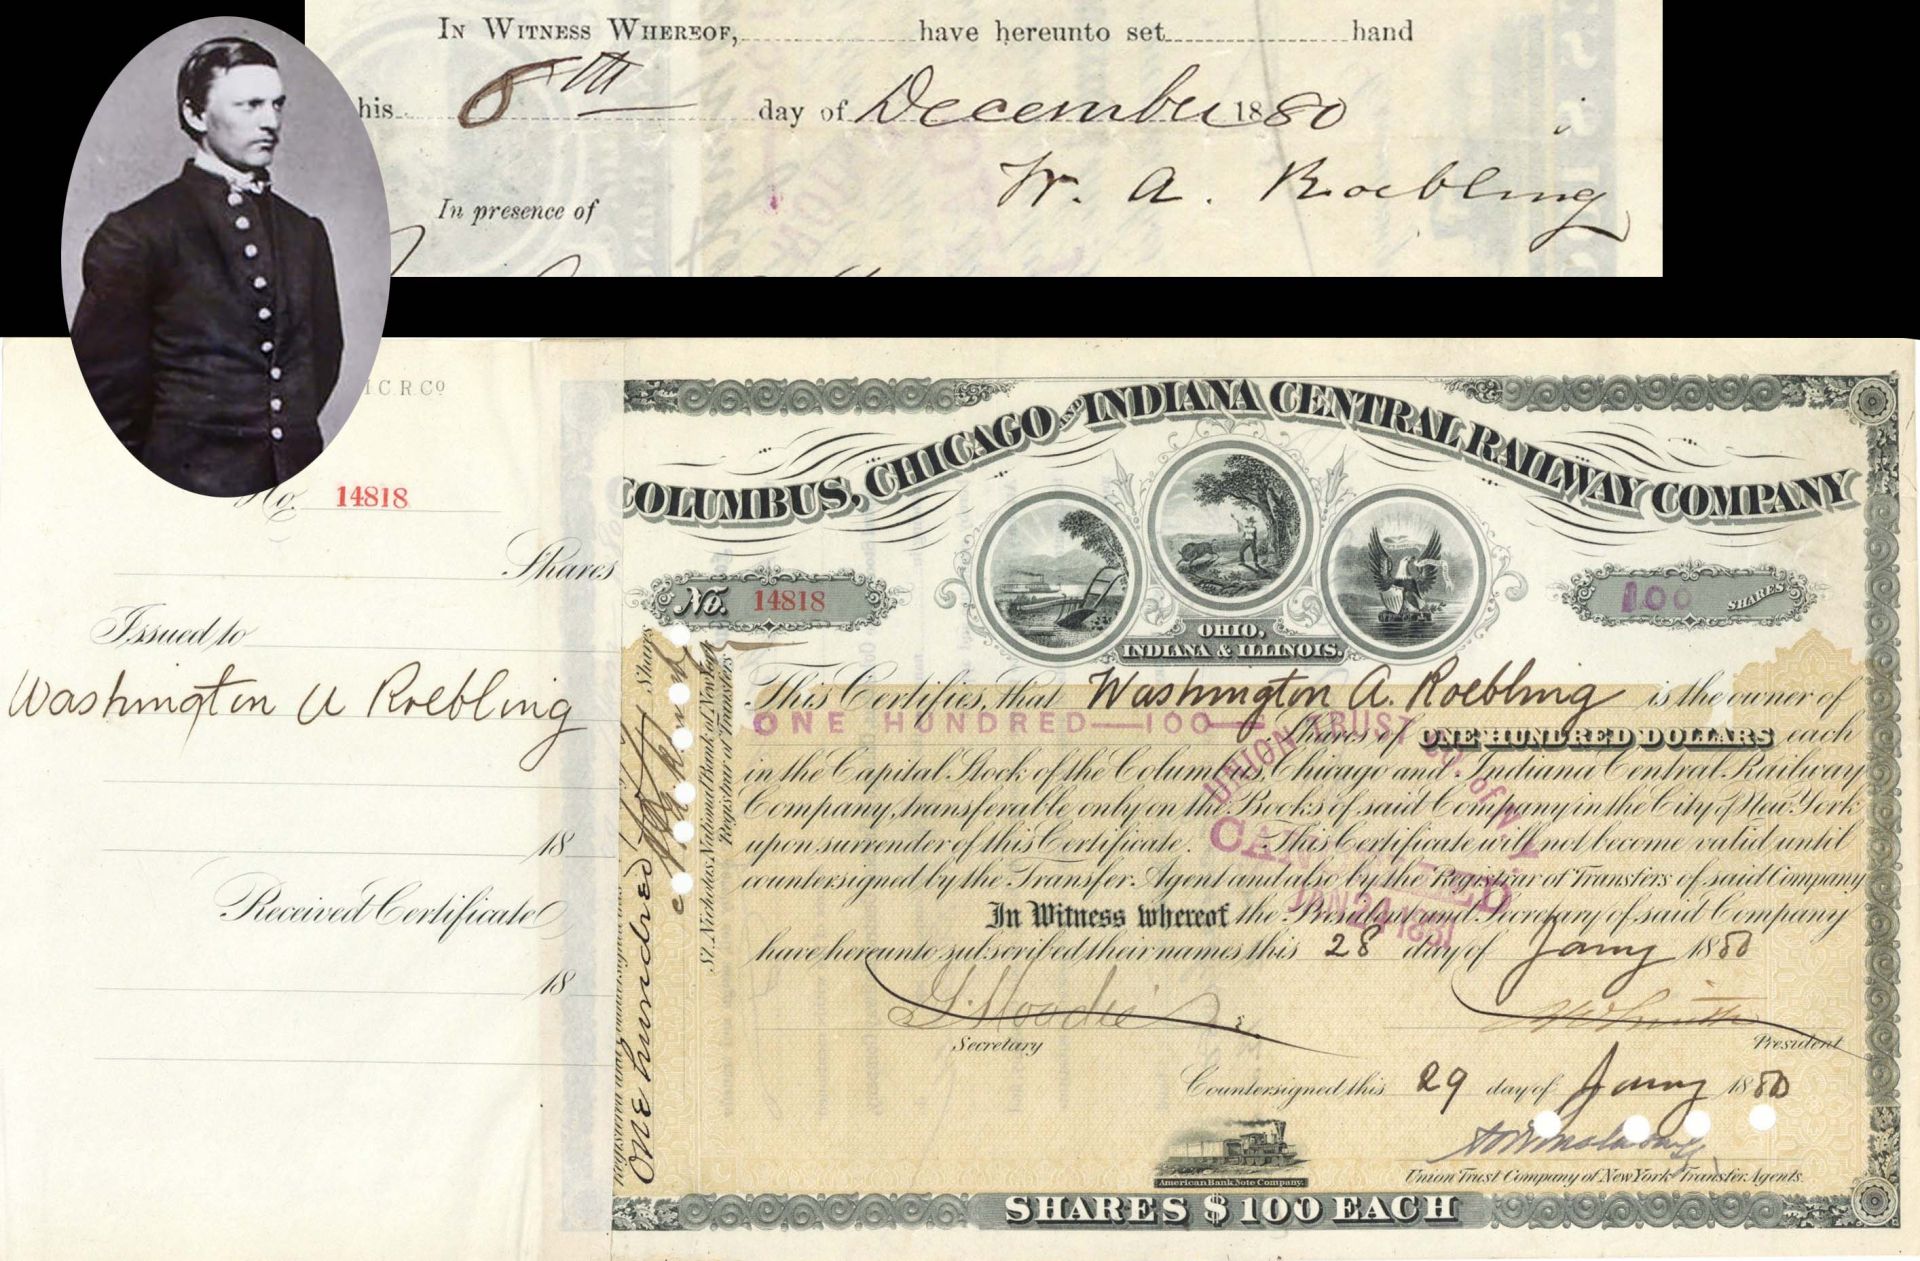 In Witness Whereof, have hereunto set hand
his 8th day of December 1880
W. A. Roebling
In presence of
I.C.R.Co
No. 14818
Shares
Issued to
Washington A Roebling
18
Received Certificate
18
COLUMBUS, CHICAGO AND INDIANA CENTRAL RAILWAY COMPANY
No. 14818
100 SHARES
OHIO,
INDIANA & ILLINOIS.
This Certifies, that Washington A. Roebling is the owner of
ONE HUNDRED—100— Shares of ONE HUNDRED DOLLARS each
in the Capital Stock of the Columbus, Chicago and Indiana Central Railway
Company, transferable only on the Books of said Company in the City of New York
upon surrender of this Certificate. This Certificate will not become valid until
countersigned by the Transfer Agent and also by the Registrar of Transfers of said Company
In Witness whereof the President and Secretary of said Company
have hereunto subscribed their names this 28 day of Jany 1880
Secretary
President
Countersigned this 29 day of Jany 1880
Union Trust Company of New York Transfer Agents.
American Bank Note Company.
SHARES $100 EACH
UNION TRUST CO. OF N.Y.
CANCELLED
JAN 24 1881
One hundred Shares
St. Nicholas National Bank of New York
Registrar of Transfers